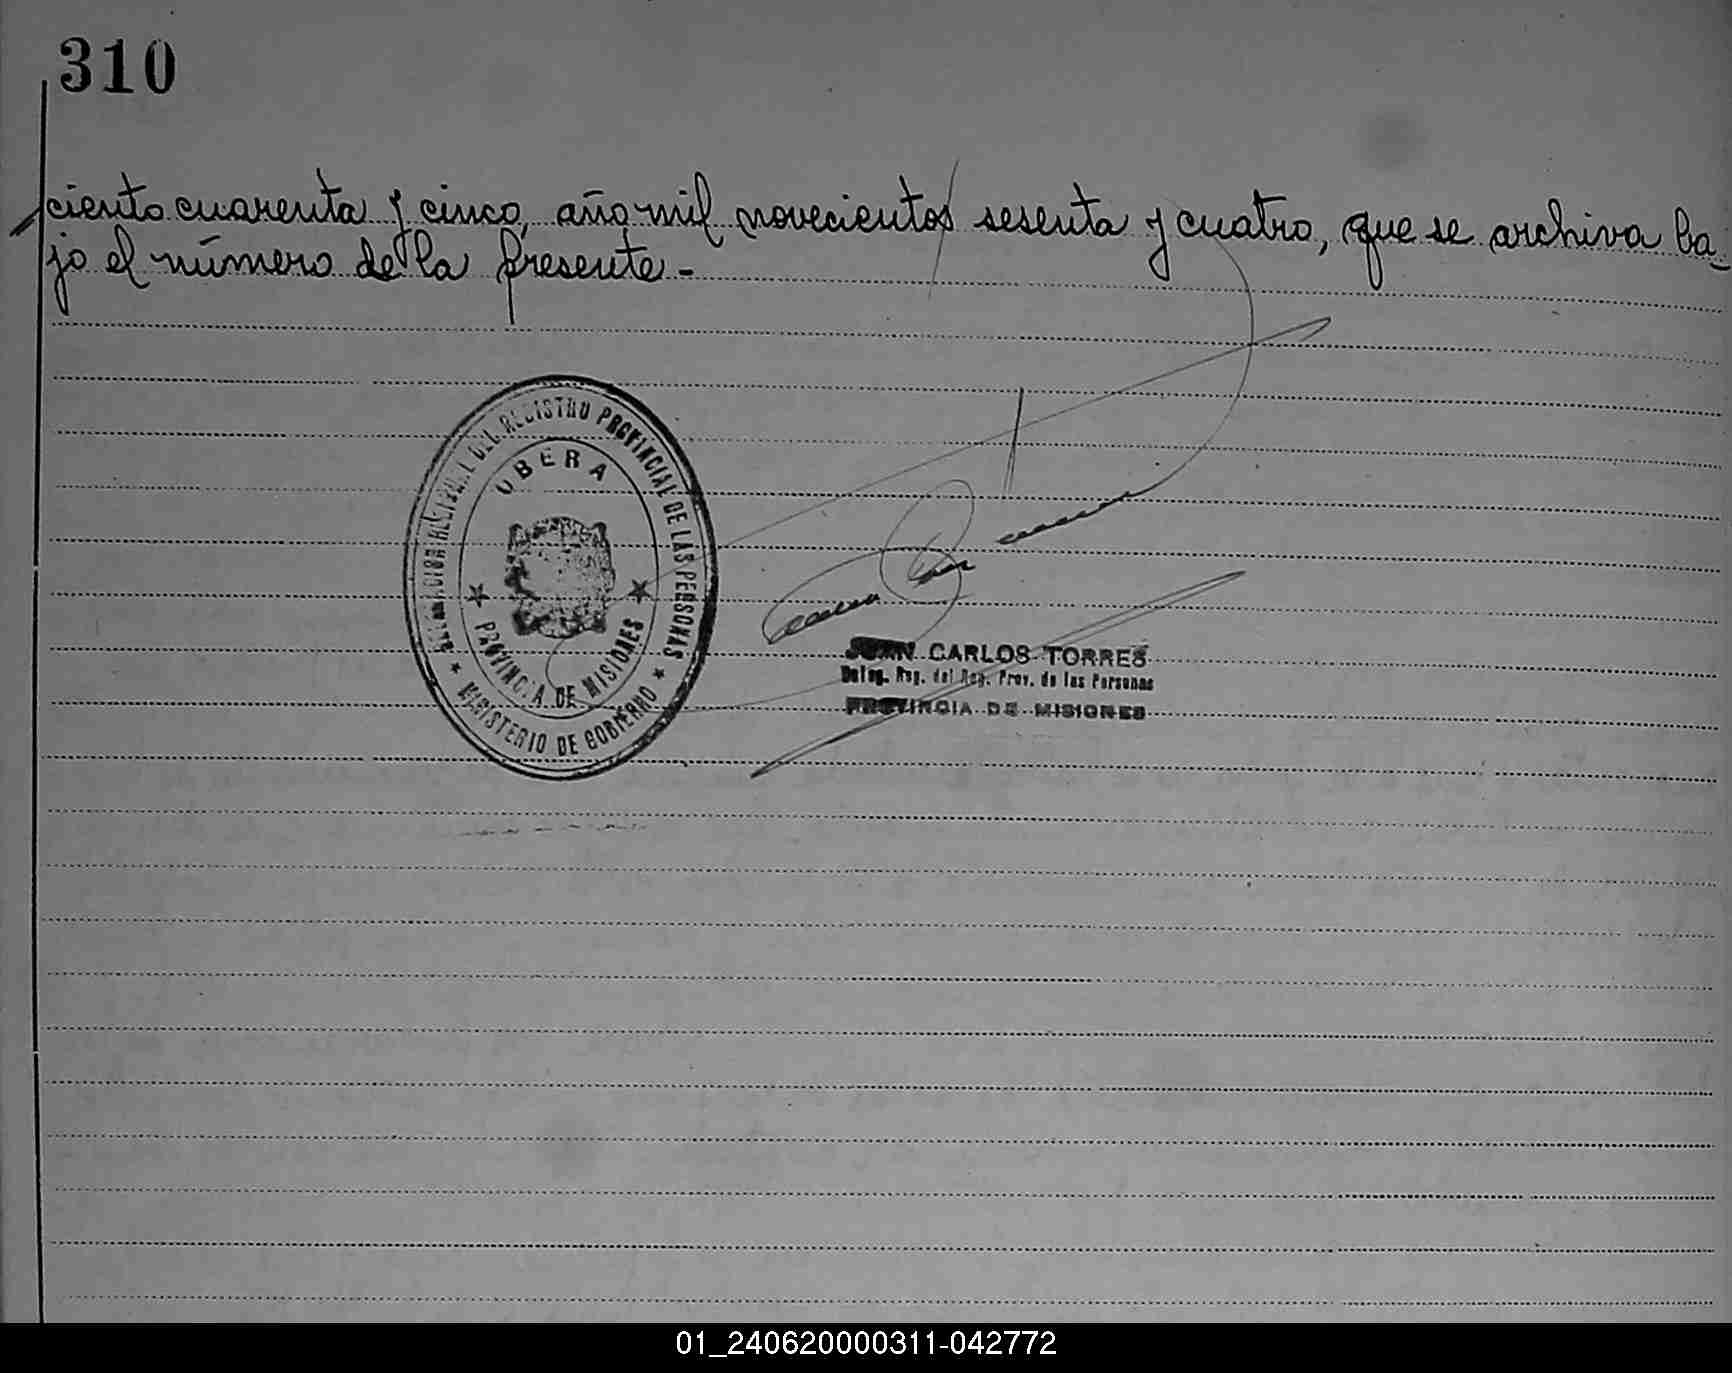 310
ciento cuarenta y cinco, año mil novecientos sesenta y cuatro, que se archiva ba-
jo el número de la presente.-
DEL REGISTRO PROVINCIAL DE LAS PERSONAS
OBERA
PROVINCIA DE MISIONES
MINISTERIO DE GOBIERNO
JUAN CARLOS TORRES
Deleg. Reg. del Reg. Prov. de las Personas
PROVINCIA DE MISIONES
01_240620000311-042772